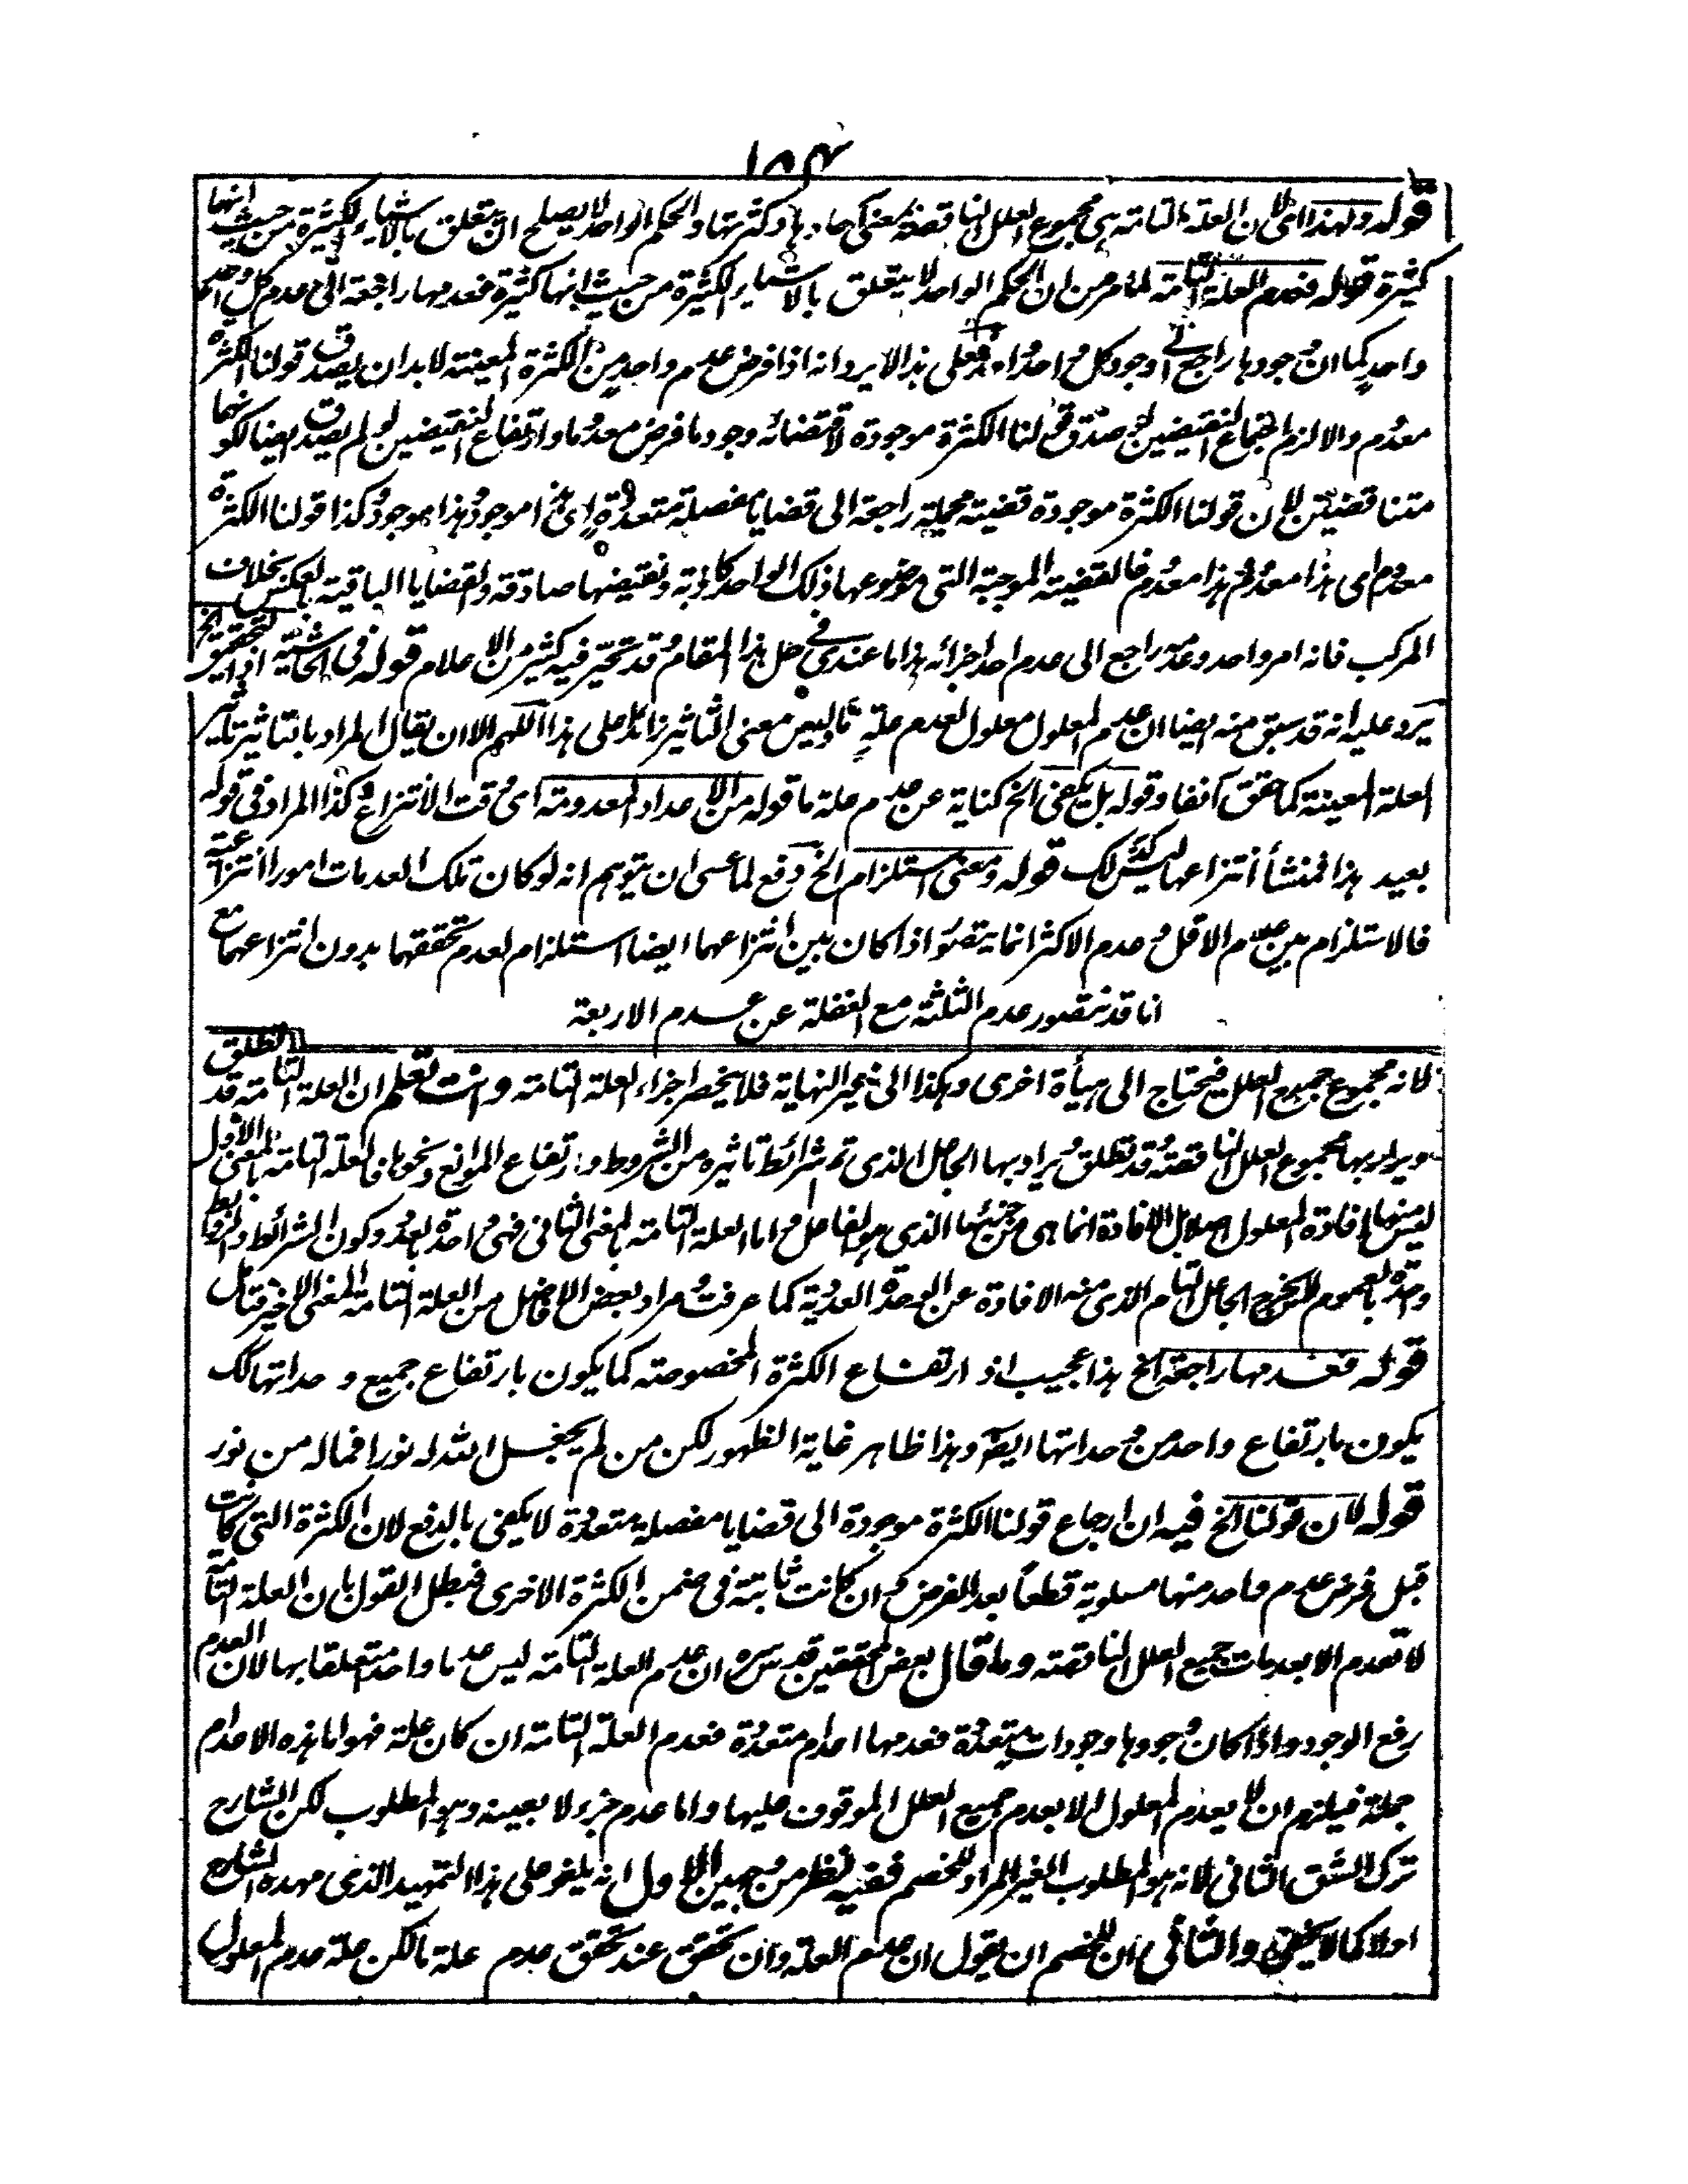 ١٨٤
قوله ولهذا اى لان العلة التامة هى مجموع العلل الناقصة بمعنى آحادها وكثرتها والحكم الواحد لا يصلح ان يتعلق بالاشياء الكثيرة من حيث انها
كثيرة قوله فعدم العلة التامة لما مر من ان الحكم الواحد لا يتعلق بالاشياء الكثيرة من حيث انها كثيرة فعدمها راجعة الى عدم كل واحد
واحد كما ان وجودها راجع الى وجود كل واحد واحد فعلى هذا لا يرد انه اذا فرض عدم واحد من الكثرة المعينة لا بد ان يصدق قولنا الكثرة
معدوم والا لزم اجتماع النقيضين لو صدق قولنا الكثرة موجودة لاقتضائه وجود ما فرض معدوما وارتفاع النقيضين لو لم يصدق ايضا لكونهما
متناقضين لان قولنا الكثرة موجودة قضية مجملة راجعة الى قضايا مفصلة متعددة اى هذا موجود وهذا موجود وكذا قولنا الكثرة
معدوم اى هذا معدوم وهذا معدوم فالقضية الموجبة التى موضوعها ذلك الواحد كاذبة ونقيضها صادقة والقضايا الباقية بالعكس بخلاف
المركب فانه امر واحد وعدمه راجع الى عدم احد اجزائه هذا ما عندى فى حل هذا المقام وقد تحير فيه كثير من الاعلام قوله فى الحاشية اذا التحقيق الخ
يرد عليه انه قد سبق منه ايضا ان عدم المعلول معلول لعدم علة ما وليس معنى التاثير زائد على هذا اللهم الا ان يقال المراد بالتاثير تاثير
العلة المعينة كما حقق آنفا وقوله بل يكفى الخ كناية عن عدم علة ما قوله من الاعداد المعدومة اى وقت الانتزاع وكذا المراد فى قوله
بعيد هذا فمنشأ انتزاعها ليس كذلك قوله ومعنى استلزام الخ دفع لما عسى ان يتوهم انه لو كان تلك العدمات امورا انتزاعية
فالاستلزام بين عدم الاقل وعدم الاكثر انما يتصور اذا كان بين انتزاعهما ايضا استلزام لعدم تحققهما بدون انتزاعهما مع
انا قد نتصور عدم الثلثة مع الغفلة عن عدم الاربعة
لانه مجموع جميع العلل فيحتاج الى هيأة اخرى وهكذا الى غير النهاية فلا ينحصر اجزاء العلة التامة وانت تعلم ان العلة التامة قد تطلق
ويراد بها مجموع العلل الناقصة وقد تطلق ويراد بها الجاعل الذى تم شرائط تاثيره من الشروط وارتفاع الموانع ونحوها فالعلة التامة بالمعنى الاول
ليس منها افادة المعلول اصلا بل الافادة انما هى من جزئها الذى هو الفاعل واما العلة التامة بالمعنى الثانى فهى واحدة بالعدد وكون الشرائط والروابط
واحدة بالعموم لا يخرج الجاعل التام الذى منه الافادة عن الوحدة العددية كما عرفت ومراد بعض الافاضل من العلة التامة المعنى الاخير فتأمل
قوله فعدمها راجعة الخ هذا عجيب اذ ارتفاع الكثرة المخصوصة كما يكون بارتفاع جميع وحداتها كك
يكون بارتفاع واحد من وحداتها ايضا وهذا ظاهر غاية الظهور لكن من لم يجعل الله له نورا فما له من نور
قوله لان قولنا الخ فيه ان ارجاع قولنا الكثرة موجودة الى قضايا مفصلة متعددة لا يكفى بالدفع لان الكثرة التى كانت
قبل فرض عدم واحد منها مسلوبة قطعا بعد الفرض وان كانت ثابتة فى ضمن الكثرة الاخرى فبطل القول بان العلة التامة
لا تعدم الا بعدمات جميع العلل الناقصة وما قال بعض المحققين قدس سره ان عدم العلة التامة ليس عدما واحدا متعلقا بها لان العدم
رفع الوجود واذا كان وجودها وجودات متعددة فعدمها اعدام متعددة فعدم العلة التامة ان كان علة فهو اما هذه الاعدام
جملة فيلزم ان لا يعدم المعلول الا بعدم جميع العلل الموقوف عليها واما عدم جزء لا بعينه وهو المطلوب لكن الشارح
ترك الشق الثانى لانه هو المطلوب الغير المراد للخصم ففيه نظر من وجهين الاول انه يلغو على هذا التمهيد الذى مهده الشارح
اولا كما لا يخفى والثانى ان للخصم ان يقول ان عدم العلة وان تحقق عند تحقق عدم علة ما لكن علة عدم المعلول